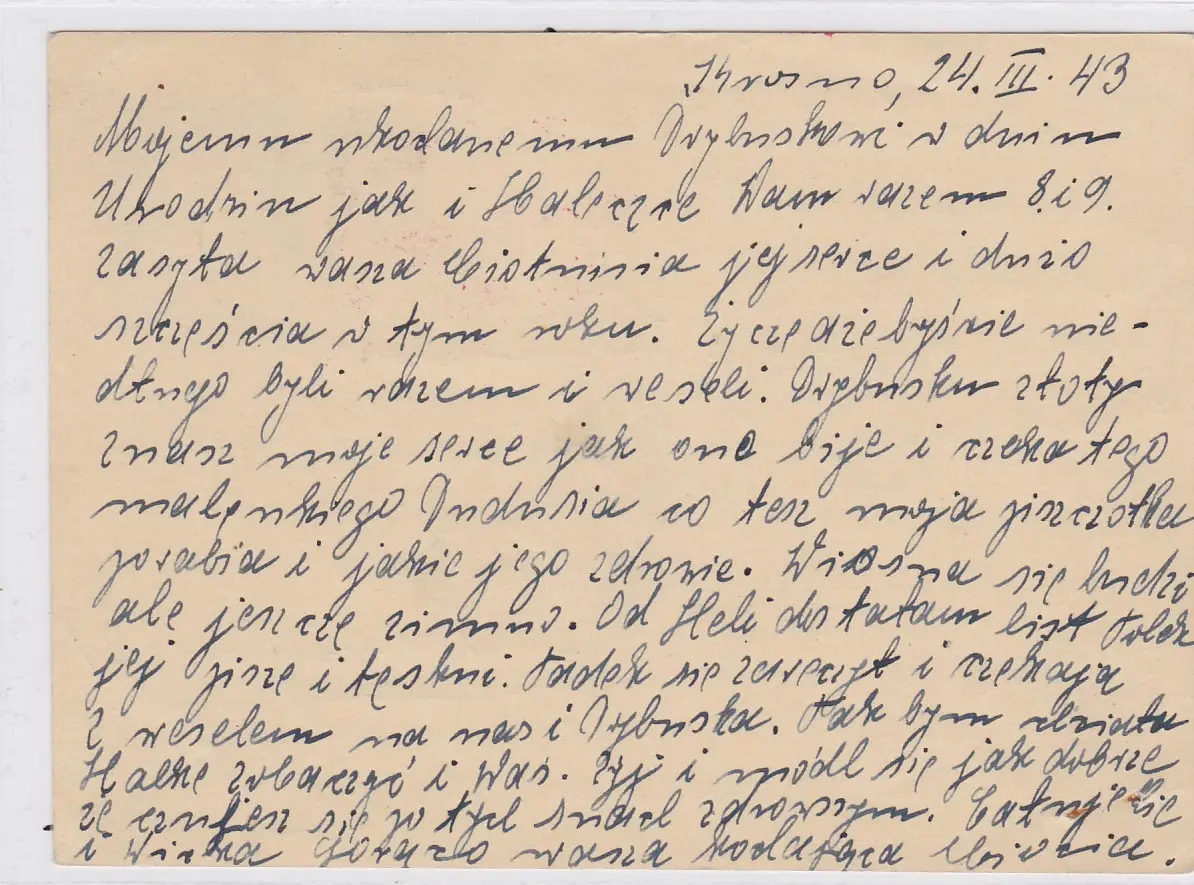 Krosno, 24. III. 43
Mojemu ukochanemu Dzybuskowi w dniu
Urodzin jak i Haleczce Wam razem 8. i 9.
zasyła wasza Ciotunia jej serce i dużo
szczęścia w tym roku. Życzę że byście nie-
długo byli razem i weseli. Dzybusku złoty
znasz moje serce jak one bije i czeka tego
maleńkiego Dudusia co tesz moja pieszczotka
porabia i jakie jego zdrowie. Wiosna się budzi
ale jeszcze zimno. Od Heli dostałam list Tolek
jej pisze i tęskni. Tadek się zaręczył i czekają
z weselem na nas i Dzybuska. Tak bym chciała
Halkę zobaczyć i Was. Żyj i módl się jak dobrze
że czujesz się po tych snach zdrowszym. Całuję Cię
i Wicka gorąco wasza kochająca Ciocia.